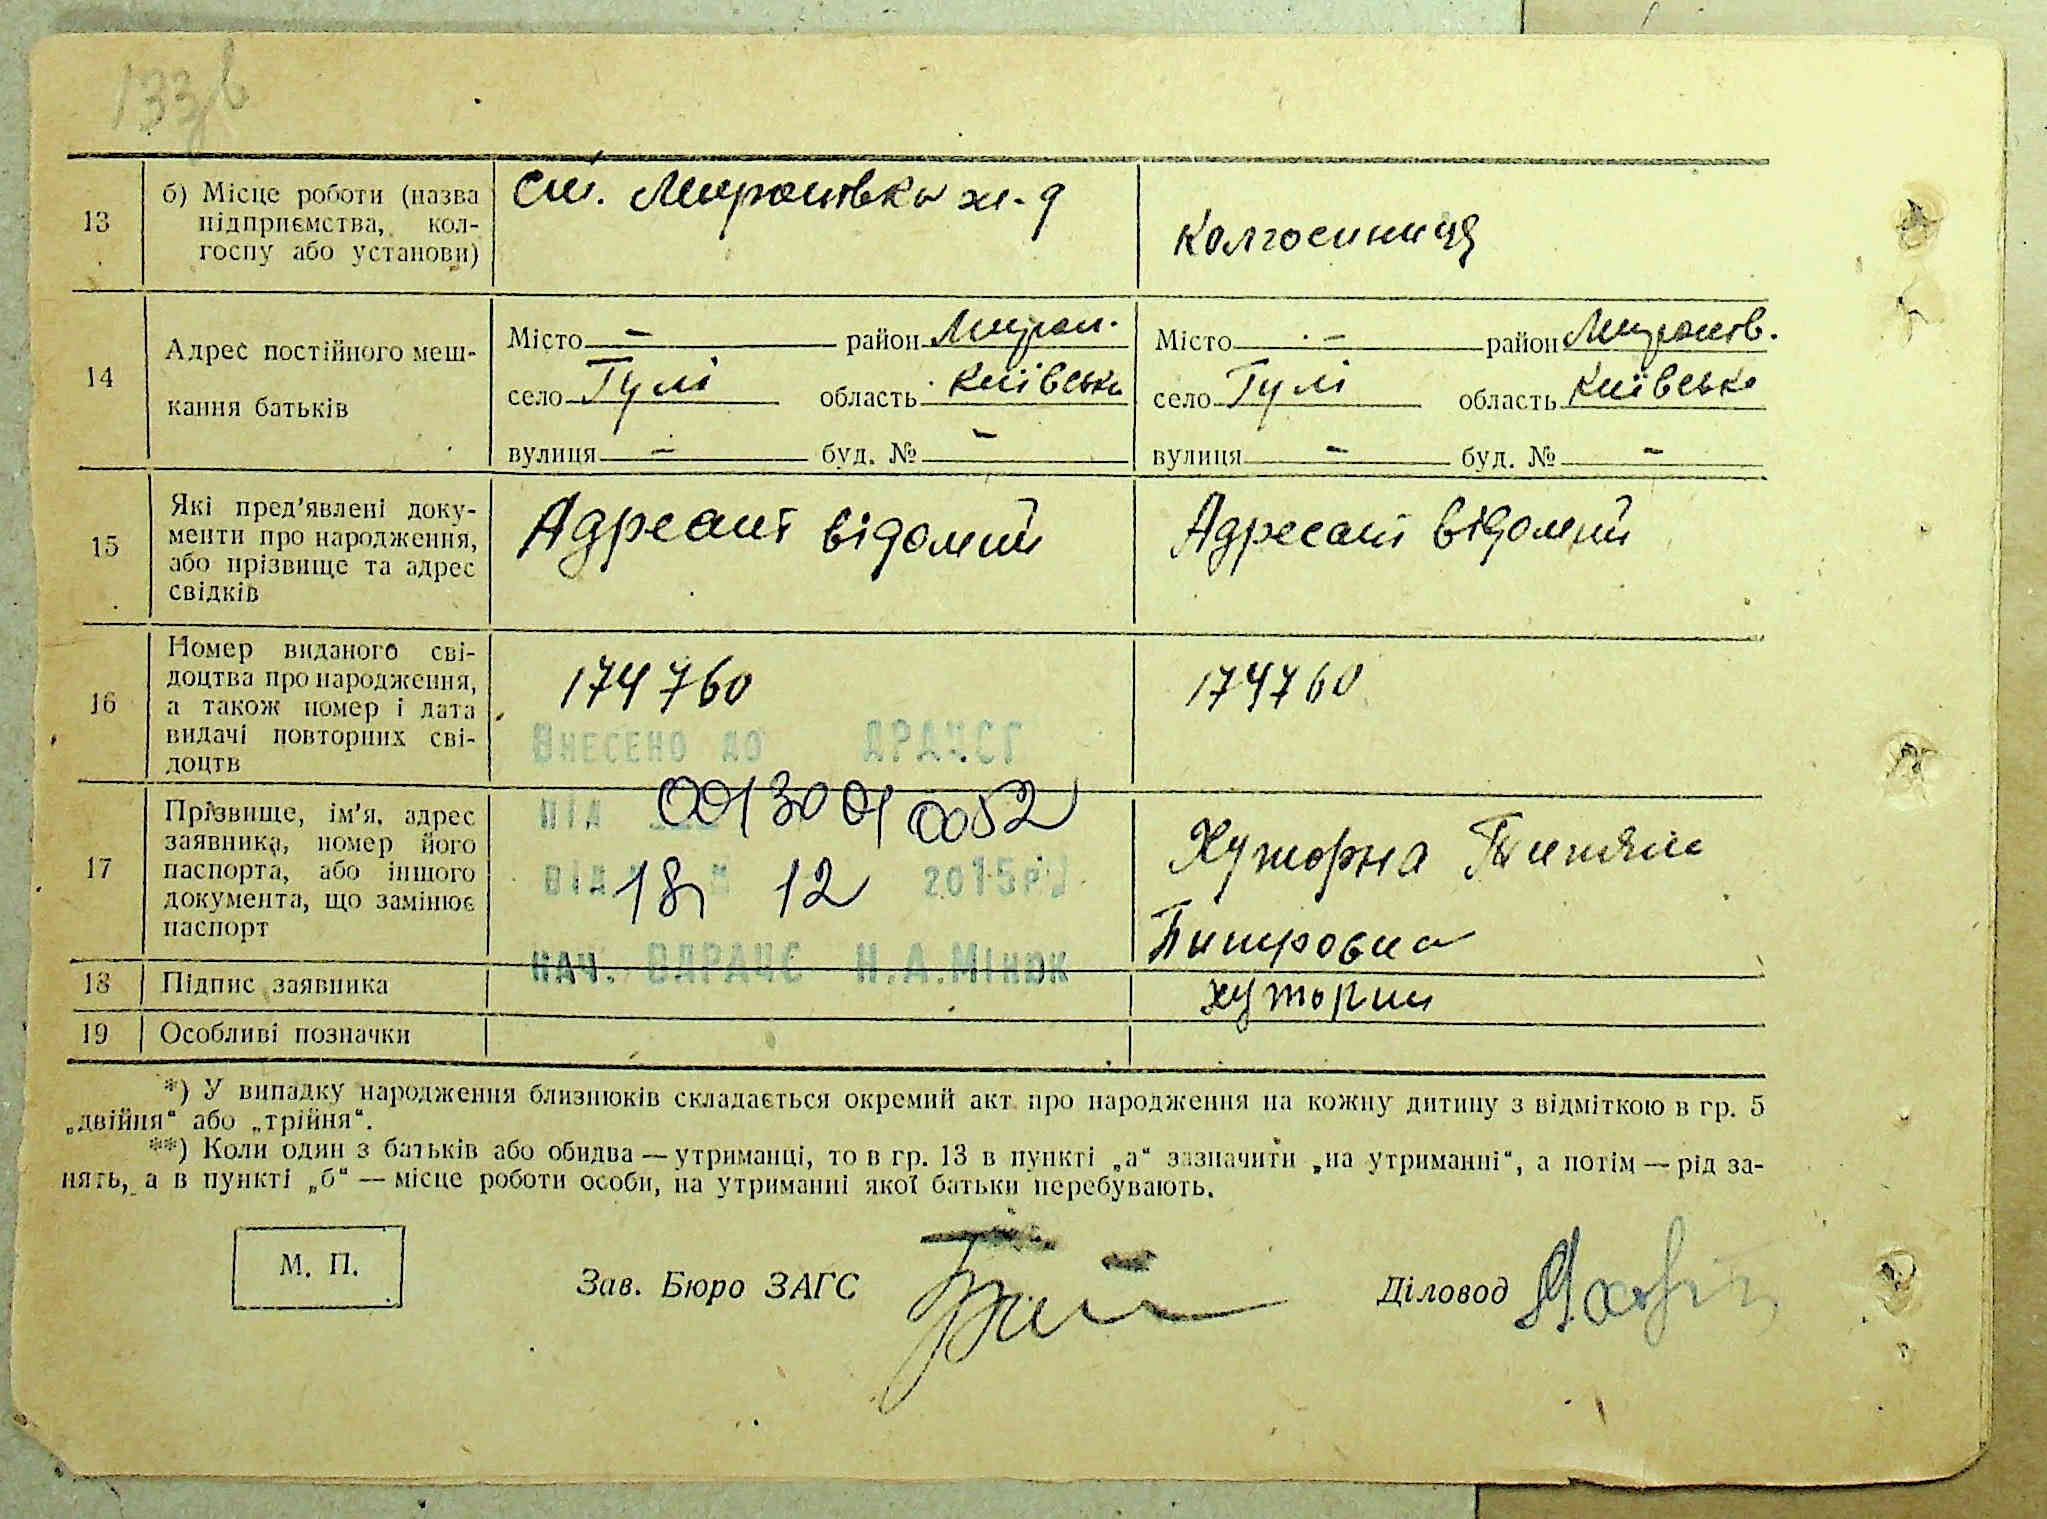 133
13
б) Місце роботи (назва
підприємства, кол-
госпу або установи)
ст. Мироновка ж-д
колгоспниця
14
Адрес постійного меш-
кання батьків
Місто — район Мирон.
село Тулі область Київська
вулиця — буд. № —
Місто — район Миронов.
село Тулі область Київська
вулиця — буд. № —
15
Які пред'явлені доку-
менти про народження,
або прізвище та адрес
свідків
Адресант відомий
Адресант відомий
16
Номер виданого сві-
доцтва про народження,
а також номер і дата
видачі повторних сві-
доцтв
174760
174760
Внесено до ДРАЦСГ
під 00130010052
від 18 12 2015р
нач. ВДРАЦС Н.А.Мінюк
17
Прізвище, ім'я, адрес
заявника, номер його
паспорта, або іншого
документа, що замінює
паспорт
Хуторна
18
Підпис заявника
19
Особливі позначки
*) У випадку народження близнюків складається окремий акт про народження на кожну дитину з відміткою в гр. 5
„двійня“ або „трійня“.
**) Коли один з батьків або обидва — утриманці, то в гр. 13 в пункті „а“ зазначити „на утриманні“, а потім — рід за-
нять, а в пункті „б“ — місце роботи особи, на утриманні якої батьки перебувають.
М. П.
Зав. Бюро ЗАГС
Діловод